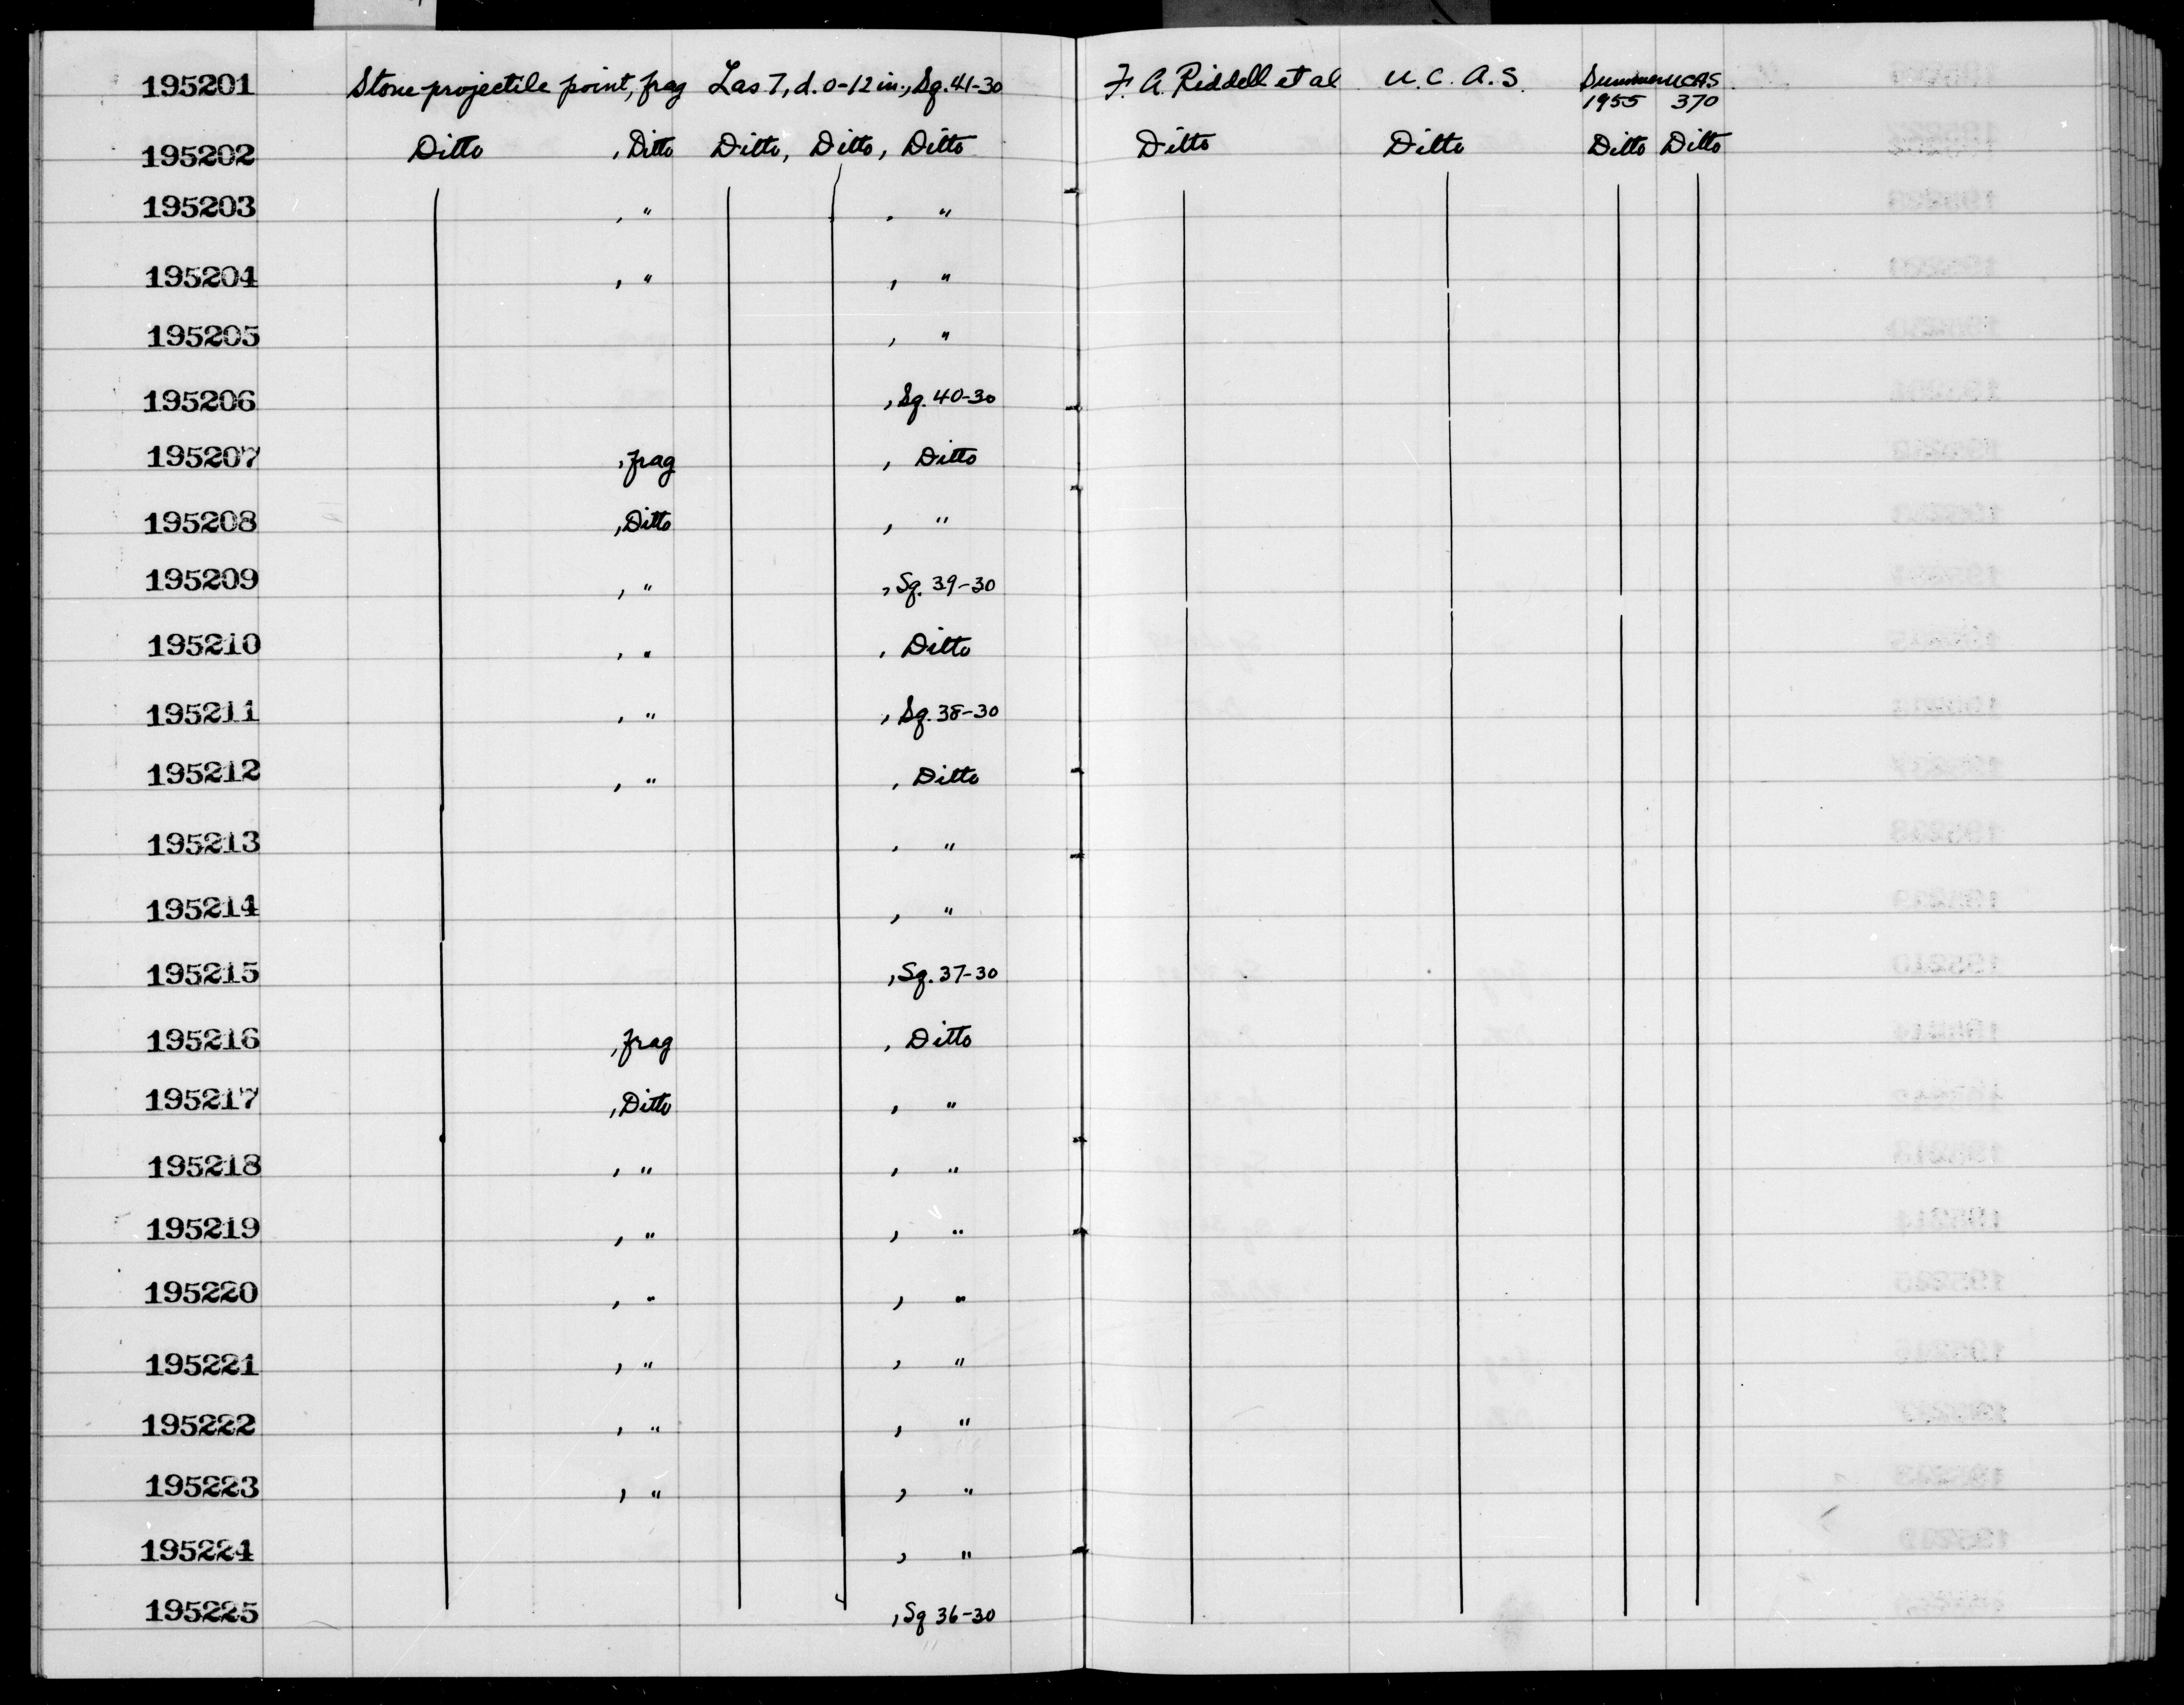 195201 Stone projectile point, frag Las 7, d. 0-12 in., Sq. 41-30 F. A. Riddell et al U. C. A. S. Summer 1955 UCAS 370
195202 Ditto , Ditto Ditto, Ditto, Ditto Ditto Ditto Ditto Ditto
195203 , " , "
195204 , " , "
195205 , "
195206 , Sq. 40-30
195207 , frag , Ditto
195208 , Ditto , "
195209 , " , Sq. 39-30
195210 , " , Ditto
195211 , " , Sq. 38-30
195212 , " , Ditto
195213 , "
195214 , "
195215 , Sq. 37-30
195216 , frag , Ditto
195217 , Ditto , "
195218 , " , "
195219 , " , "
195220 , " , "
195221 , " , "
195222 , " , "
195223 , " , "
195224 , "
195225 , Sq 36-30